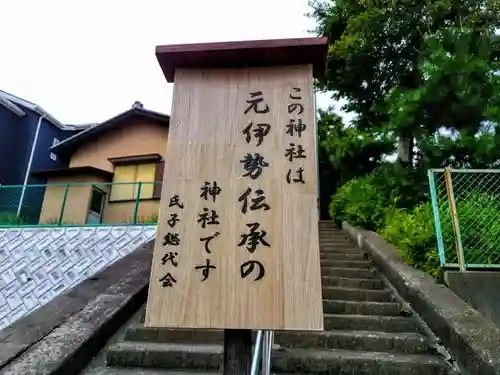 この神社は
元伊勢伝承の
神社です
氏子総代会